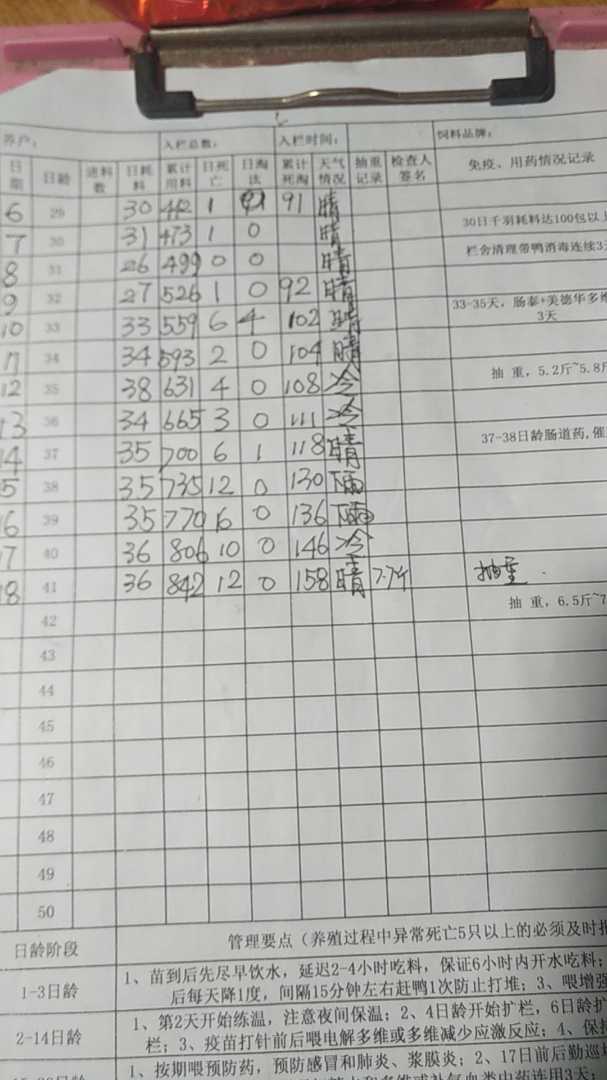 养户： 入栏总数： 入栏时间： 饲料品牌：
日期 日龄 进料数 日耗料 累计用料 日死亡 日淘汰 累计死淘 天气情况 抽重记录 检查人签名 免疫、用药情况记录
6 29 30 442 1 91 晴
7 30 31 473 1 0 晴 30日千羽耗料达100包以上
8 31 26 499 0 0 晴 栏舍清理带鸭消毒连续3天
9 32 27 526 1 0 92 晴
10 33 33 559 6 4 102 晴 33-35天，肠泰+美德华多维
3天
11 34 34 593 2 0 104 晴
12 35 38 631 4 0 108 冷 抽 重，5.2斤~5.8斤
13 36 34 665 3 0 111 冷
14 37 35 700 6 1 118 晴 37-38日龄肠道药，催
15 38 35 735 12 0 130 雨
16 39 35 770 6 0 136 雨
17 40 36 806 10 0 146 冷
18 41 36 842 12 0 158 晴 7.7斤 抽重
42 抽 重，6.5斤~7
43
44
45
46
47
48
49
50
日龄阶段 管理要点（养殖过程中异常死亡5只以上的必须及时报
1-3日龄 1、苗到后先尽早饮水，延迟2-4小时吃料，保证6小时内开水吃料；
后每天降1度，间隔15分钟左右赶鸭1次防止打堆；3、喂增强
2-14日龄 1、第2天开始练温，注意夜间保温；2、4日龄开始扩栏，6日龄扩
栏；3、疫苗打针前后喂电解多维或多维减少应激反应；4、保持
1、按期喂预防药，预防感冒和肺炎、浆膜炎；2、17日前后勤巡栏